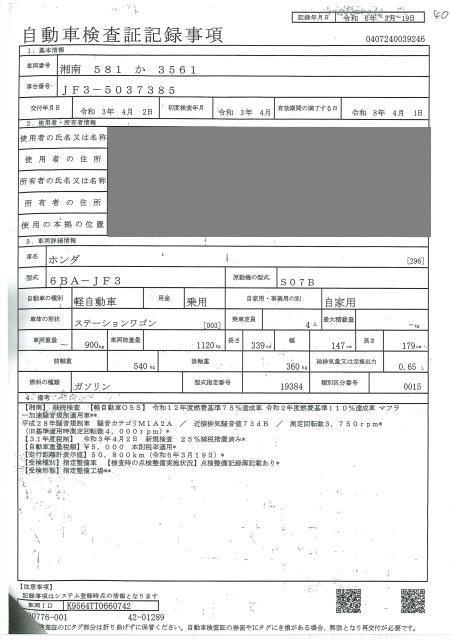 記録年月日 令和 6年 3月 19日
40
自動車検査証記録事項
0407240039246
1. 基本情報
車両番号 湘南 581 か 3561
車台番号 JF3-5037385
交付年月日 令和 3年 4月 2日 初度検査年月 令和 3年 4月 有効期間の満了する日 令和 8年 4月 1日
2. 使用者・所有者情報
使用者の氏名又は名称
使用者の住所
所有者の氏名又は名称
所有者の住所
使用の本拠の位置
3. 車両詳細情報
車名 ホンダ [296]
型式 6BA-JF3 原動機の型式 S07B
自動車の種別 軽自動車 用途 乗用 自家用・事業用の別 自家用
車体の形状 ステーションワゴン [003] 乗車定員 4人 最大積載量 -kg
車両重量 900kg 車両総重量 1120kg 長さ 339cm 幅 147cm 高さ 179cm
前軸重 540kg 後軸重 360kg 総排気量又は定格出力 0.65 L
燃料の種類 ガソリン 型式指定番号 19384 類別区分番号 0015
4. 備考
[湘南] 継続検査 【軽自動車OSS】 令和12年度燃費基準75%達成車 令和2年度燃費基準110%達成車 マフラ
ー加速騒音規制適用車**
平成28年騒音規制車 騒音カテゴリM1A2A / 近接排気騒音値73dB / 測定回転数3,750rpm*
(旧基準適用時測定回転数4,000rpm)*
[31年度税制] 令和3年4月2日 新規検査 25%減税措置済み*
[自動車重量税額] ¥5,000 本則税率適用*
[走行距離計表示値] 50,800km(令和6年3月19日)*
[受検種別] 指定整備車 【検査時の点検整備実施状況】点検整備記録簿記載あり*
[受検形態] 指定整備工場**
【注意事項】
記録事項はシステム登録時点の情報となります
車両ID K9564TT0660742
20776-001 42-01289
検査証のICタグ部分は折り曲げずに保管ください。自動車検査証の券面やICタグにき損がある場合、無効となり再交付が必要です。